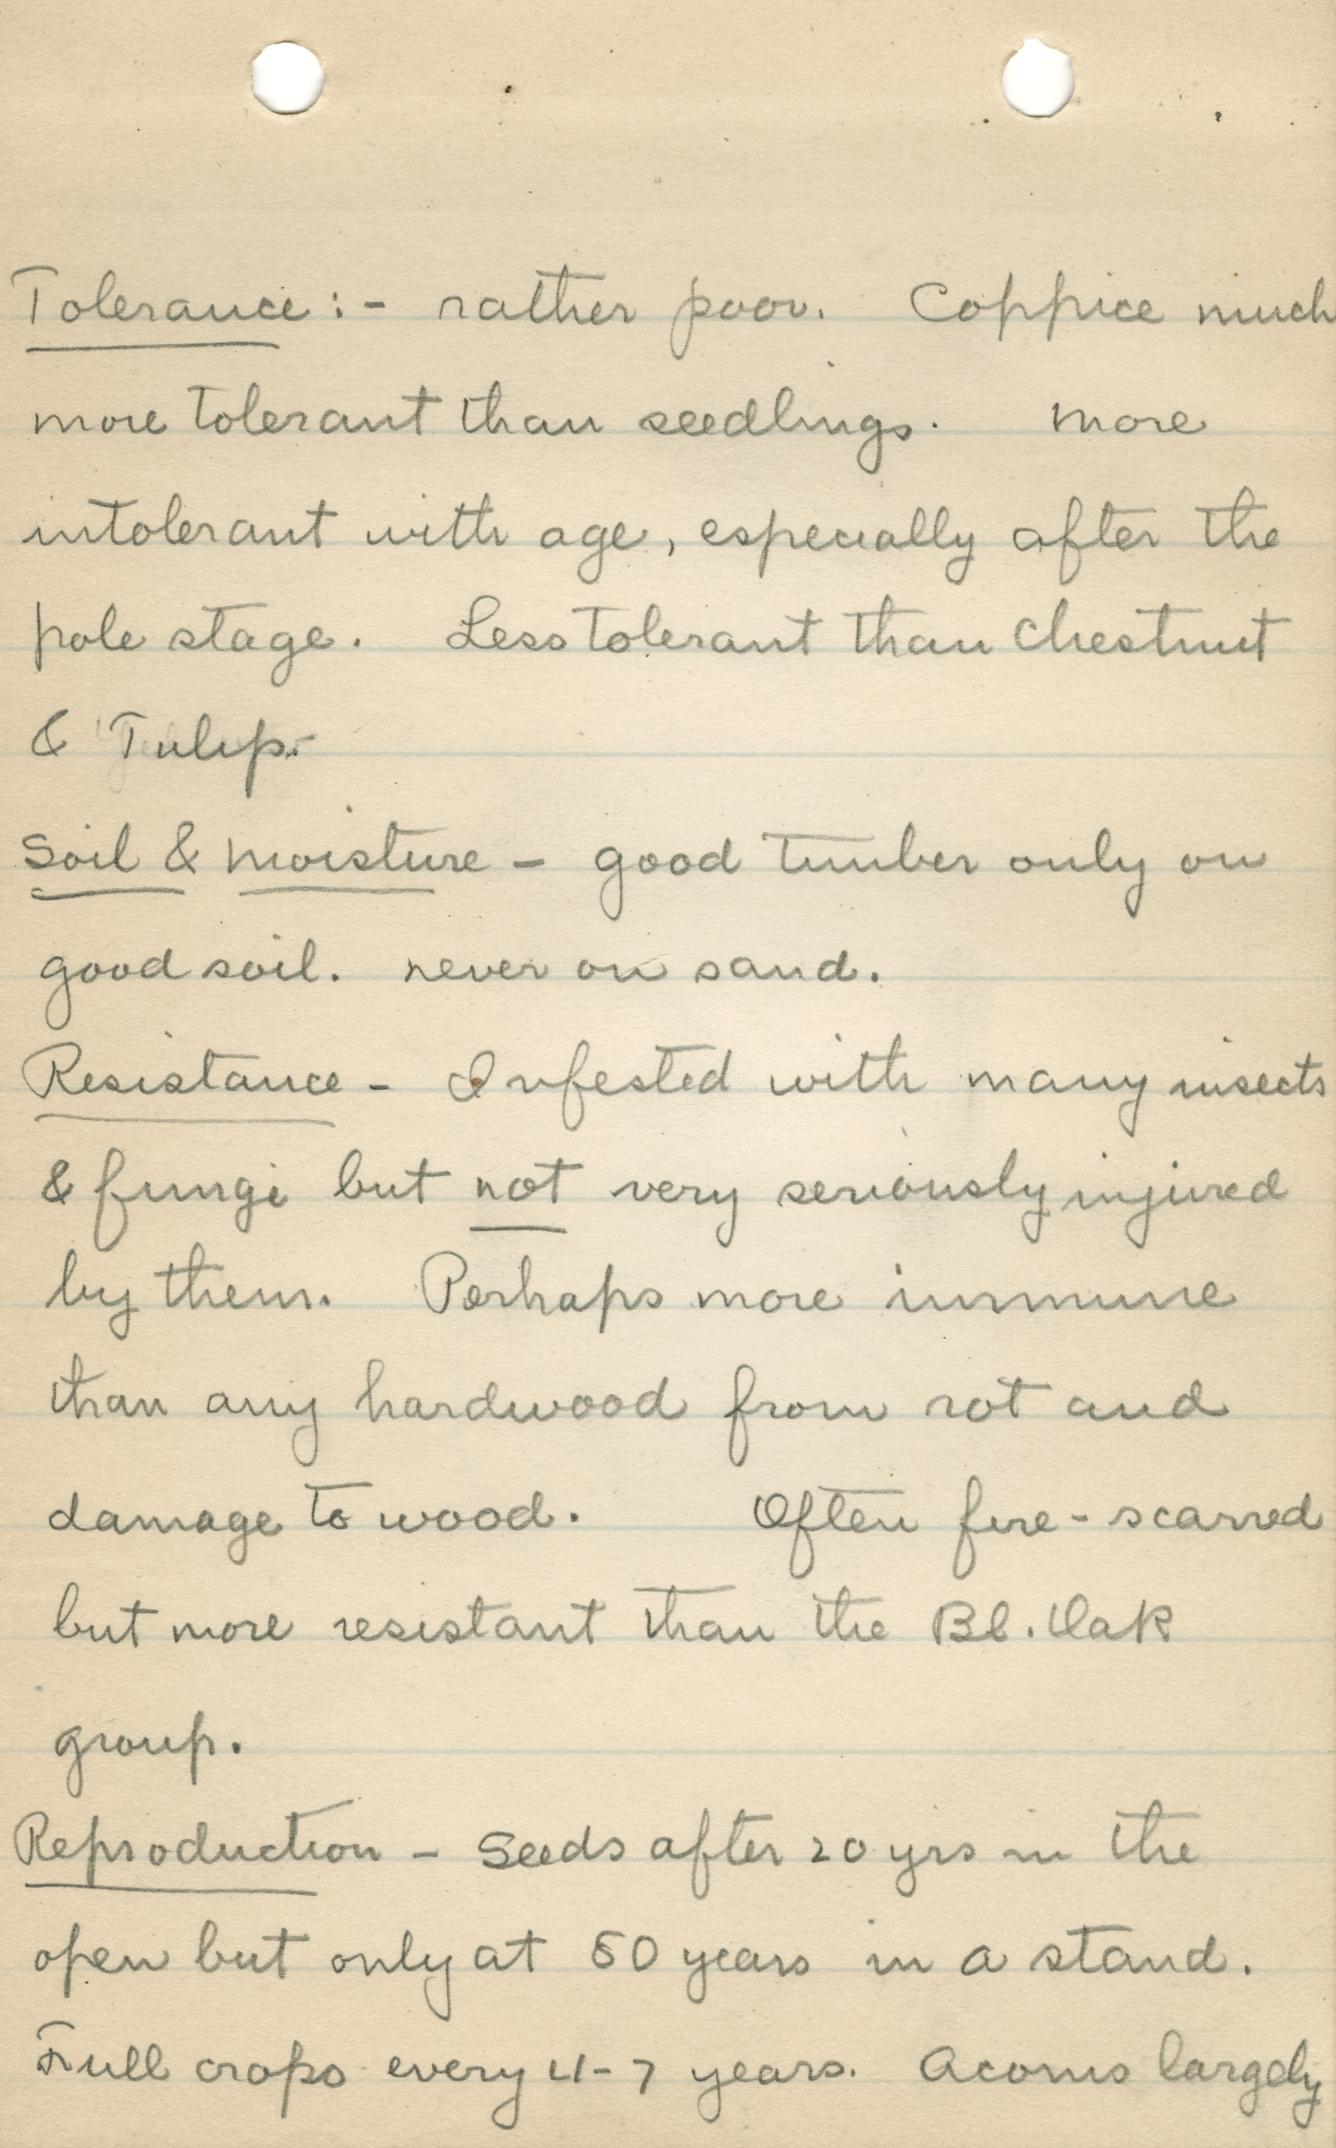 Tolerance:- rather poor. Coppice much
more tolerant than seedlings. more
intolerant with age, especially after the
pole stage. Less tolerant than Chestnut
& Tulip.
Soil & moisture - good timber only on
good soil. never on sand.
Resistance - Infested with many insects
& fungi but not very seriously injured
by them. Perhaps more immune
than any hardwood from rot and
damage to wood. Often fire-scarred
but more resistant than the Bl. Oak
group.
Reproduction - Seeds after 20 yrs in the
open but only at 50 years in a stand.
Full crops every 4-7 years. Acorns largely